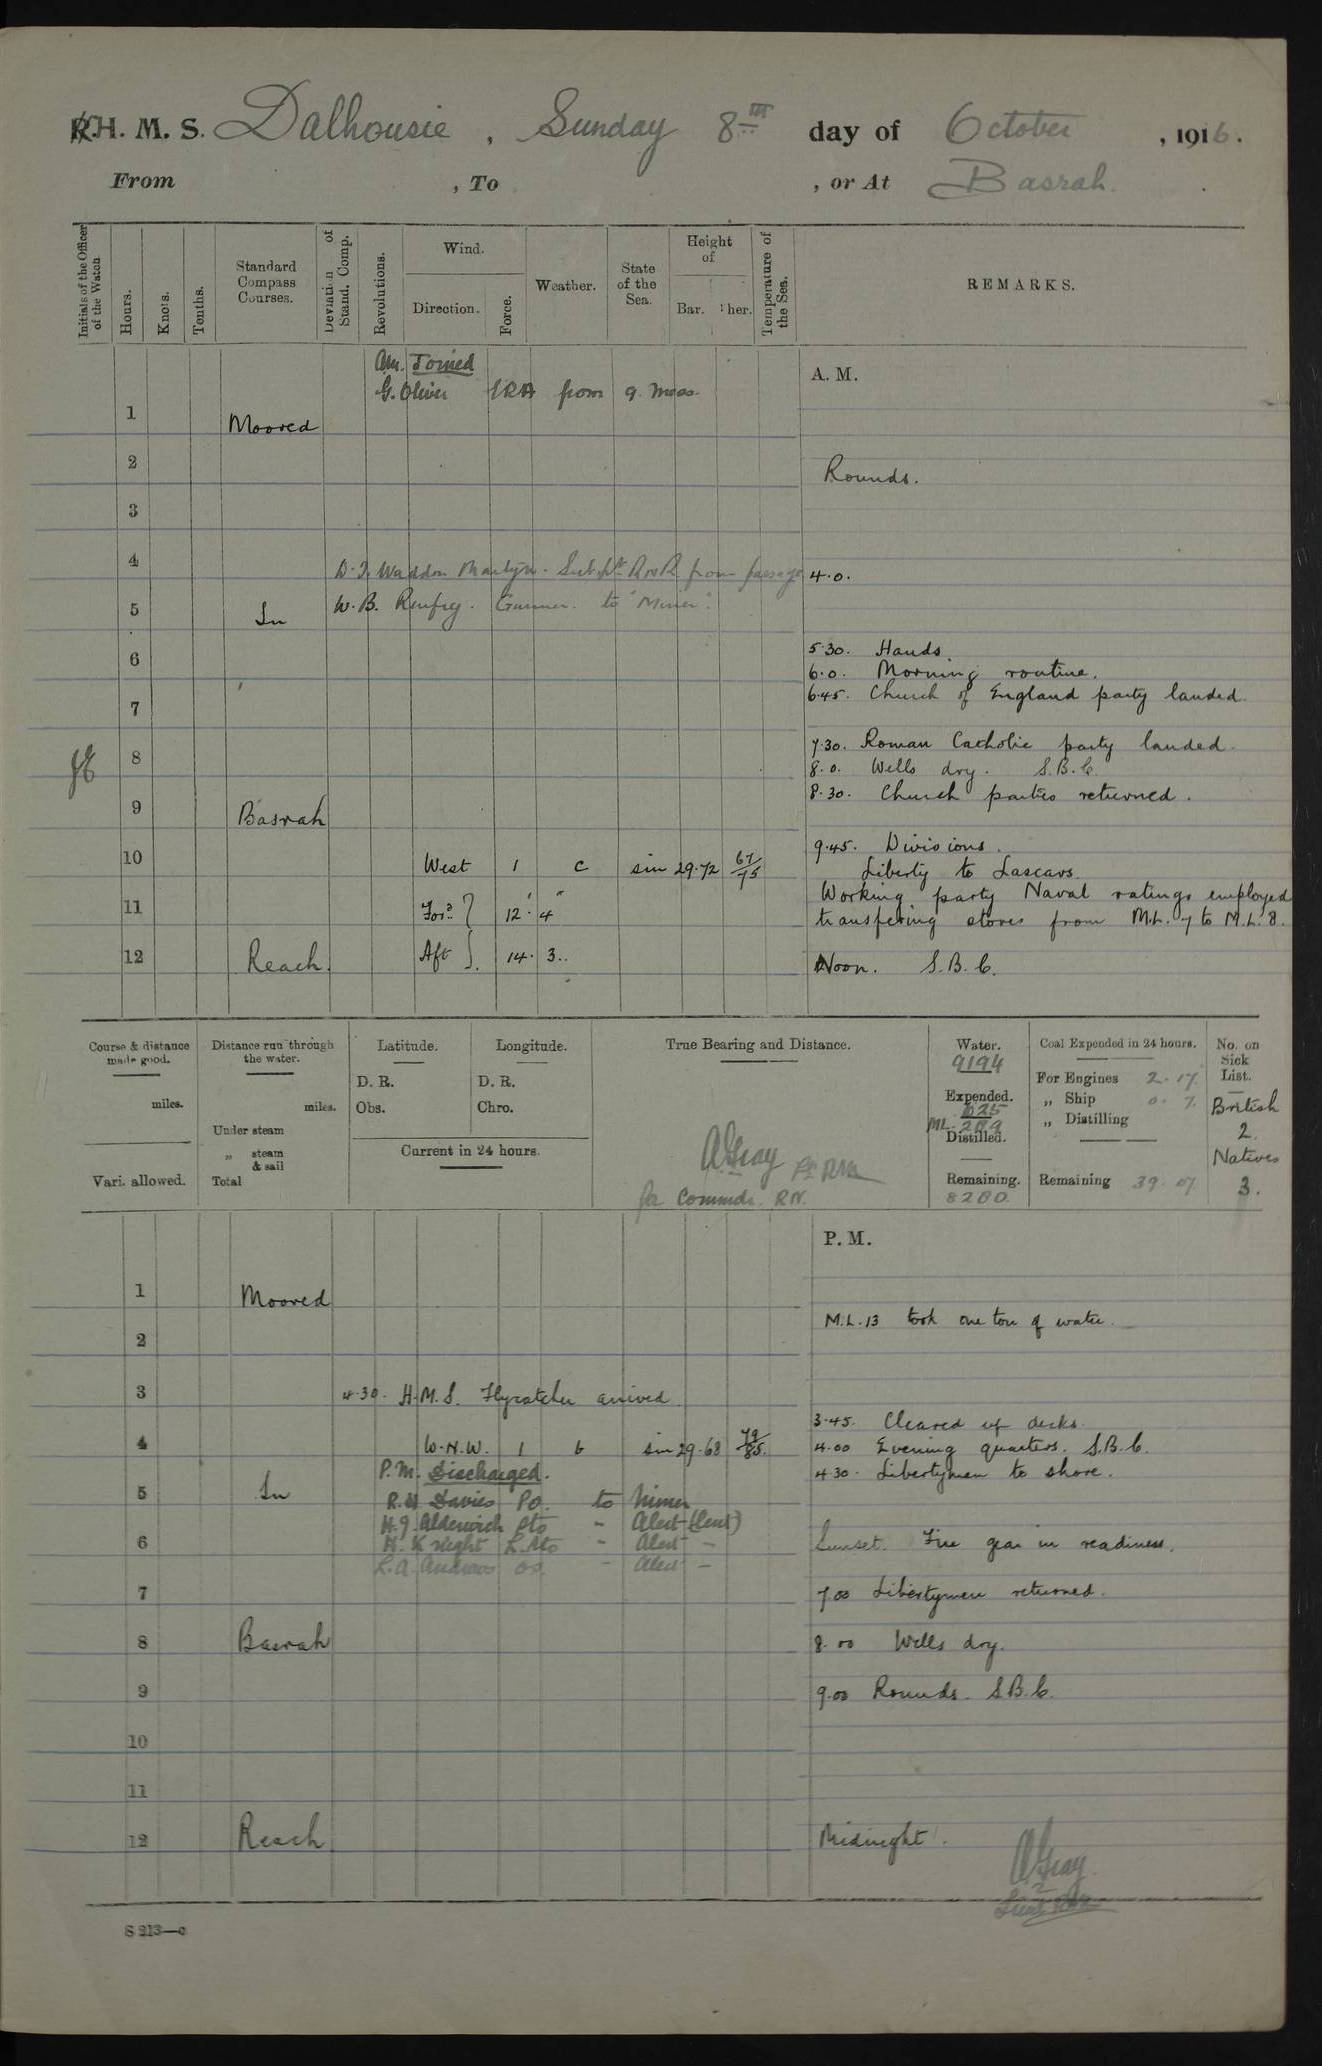 H. M. S. Dalhousie, Sunday 8th day of October, 1916.
From , To , or At Basrah.
Initials of the Officer of the Watch
Hours.
Knots.
Tenths.
Standard Compass Courses.
Deviation of Stand. Comp.
Revolutions.
Wind.
Direction.
Force.
Weather.
State of the Sea.
Height of
Bar.
Ther.
Temperature of the Sea.
REMARKS.
A. M.
am. Joined
G. Oliver ERA from 9. mess
1 Moored
2 Rounds.
3
4 D.J. Waddon Martyn. Sub Lt RNR from passage 4.0.
W.B. Renfrey. Gunner. to "Miner".
5 In
5.30. Hands
6 6.0. Morning routine.
6.45. Church of England party landed
7
7.30. Roman Catholic party landed.
8 8.0. Wells dry. S.B.C.
8.30. Church parties returned.
9 Basrah
9.45. Divisions.
10 West 1 c sm 29.72 67/75 Liberty to Lascars.
Working party Naval ratings employed
11 For'd 12' 4" transfering stores from M.L. 7 to M.L. 8.
12 Reach. Aft 14. 3.. Noon. S.B.C.
Course & distance made good.
miles.
Vari. allowed.
Distance run through the water.
miles.
Under steam
„ steam & sail
Total
Latitude.
D. R.
Obs.
Longitude.
D. R.
Chro.
Current in 24 hours.
True Bearing and Distance.
A Gray Lt RNR
for Commdr. RN.
Water.
9194
Expended.
625
ML. 289
Distilled.
Remaining.
8280
Coal Expended in 24 hours.
For Engines 2.17
„ Ship 0. 7
„ Distilling
Remaining 39.07
No. on Sick List.
British
2.
Natives
3.
P. M.
1 Moored
M.L.13 took one ton of water.
2
3 4.30. H.M.S. Flycatcher arrived
3.45. Cleared up decks.
4 W.N.W. 1 b sm 29.68 79/85. 4.00 Evening quarters. S.B.C.
P.M. Discharged. 4.30. Libertymen to shore.
5 In R.H Davies PO. to Miner
H.J. Alderwich Sto - Alert (Lent)
6 H. Knight L.Sto - Alert - Sunset. Fire gear in readiness.
L.A. Andrews - Alert -
7 7.00 Libertymen returned.
8 Basrah 8.00 Wells dry.
9 9.00 Rounds. S.B.C.
10
11
12 Reach Midnight.
A Gray
Lieut RNR
S 213—c